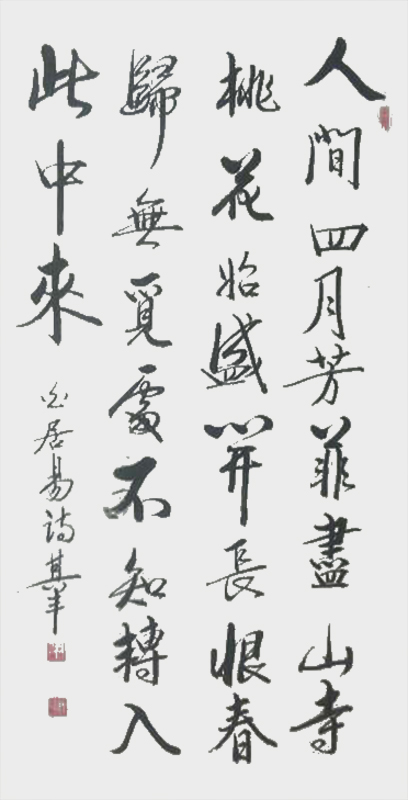 人間四月芳菲盡山寺
桃花始盛開長恨春
歸無覓處不知轉入
此中來
白居易詩其